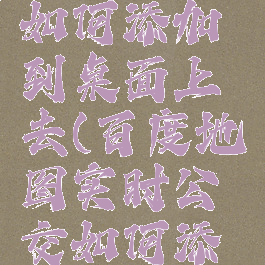 如何添加
到桌面上
去(百度地
图实时公
交如何添